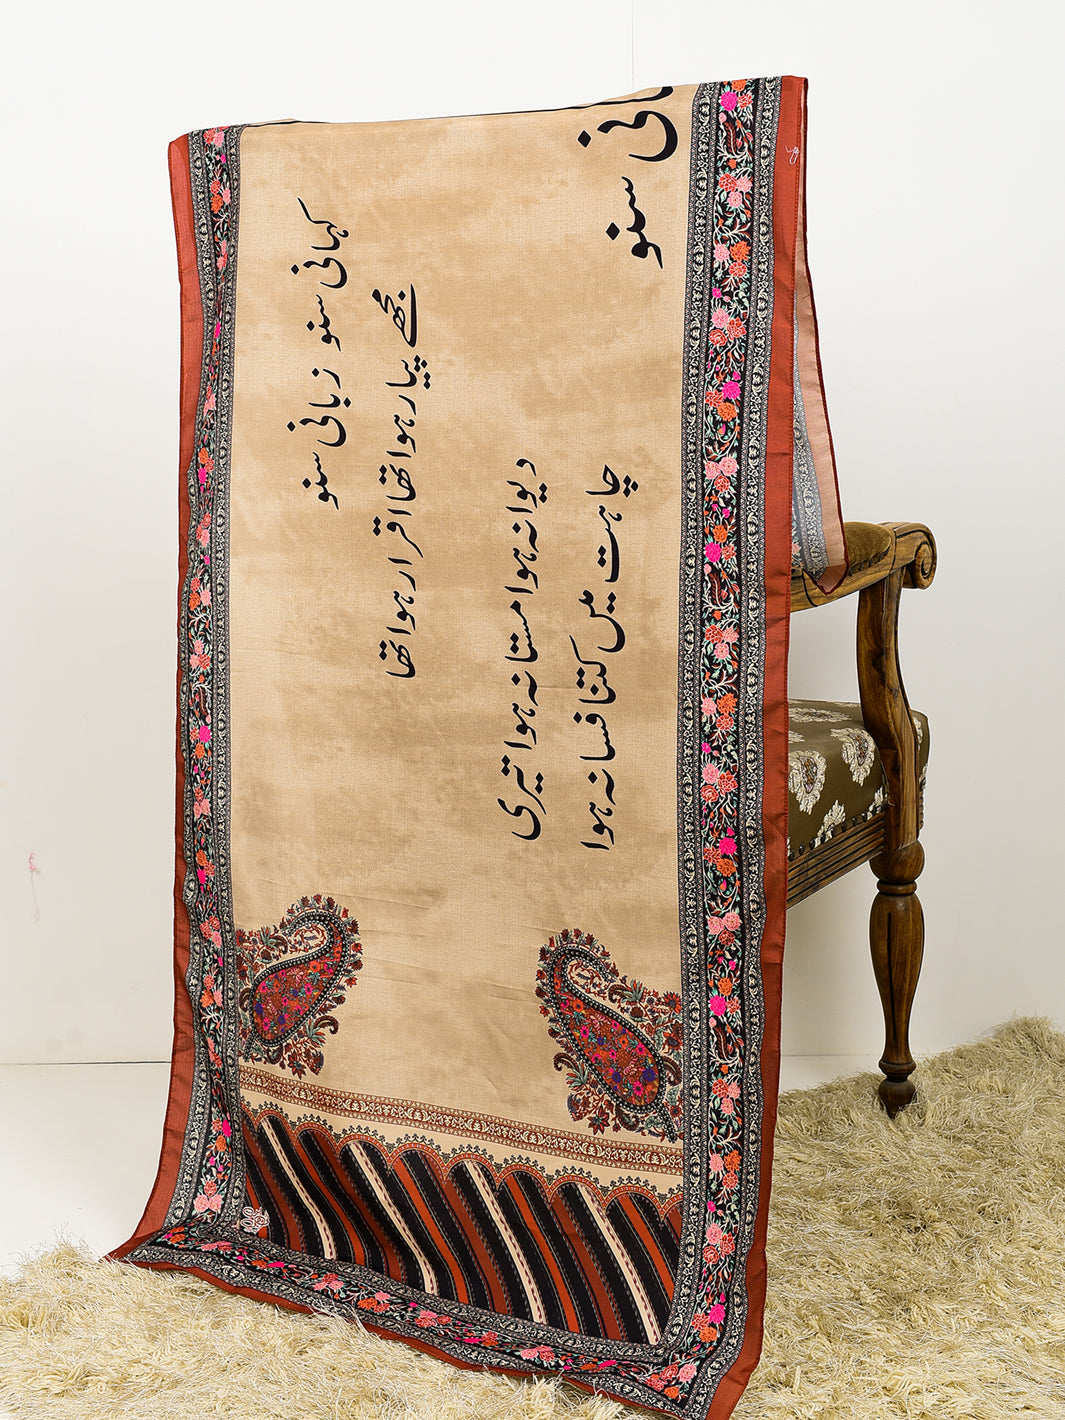 کہانی سنو زبانی سنو
مجھے پیار ہوا تھا اقرار ہوا تھا
دیوانہ ہوا مستانہ ہوا تیری
چاہت میں کتنا فسانہ ہوا
سنو